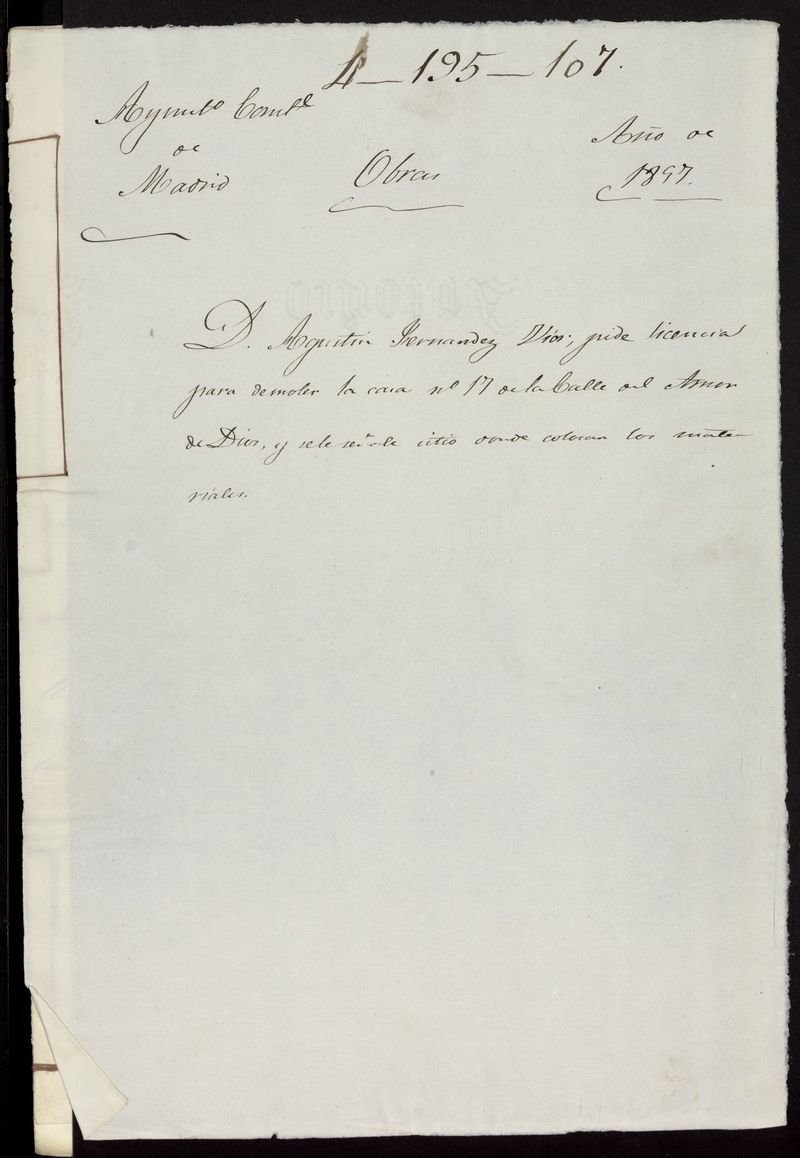 4—195—107.
Ayunto Constl
de
Madrid
Obras
Año de
1857.
D. Agustin Fernandez Rios, pide licencia
para demoler la casa no 17 de la Calle del Amor
de Dios, y se le señale sitio donde colocar los mate
riales.